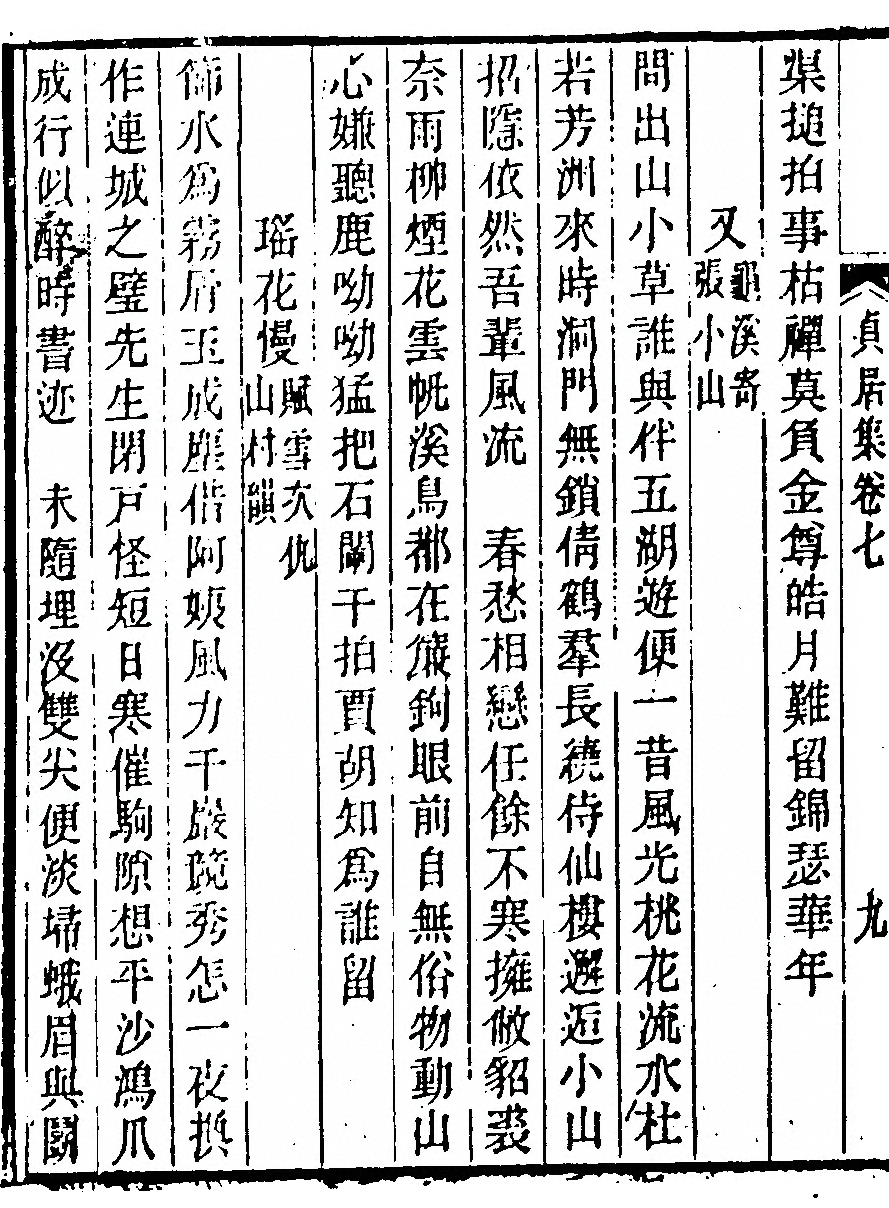 貞居集卷七 九
渠搥拍事枯禪莫負金尊皓月難留錦瑟華年
又龜溪寄張小山
問出山小草誰與伴五湖遊便一昔風光桃花流水杜
若芳洲來時洞門無鎖倩鶴羣長繞侍仙樓邂逅小山
招隱依然吾輩風流 春愁相戀任餘不寒擁敝貂裘
奈雨柳煙花雲帆溪鳥都在簾鉤眼前自無俗物動山
心嫌聽鹿呦呦猛把石闌干拍賈胡知爲誰留
瑤花慢賦雪次仇山村韻
篩水爲霧屑玉成塵借阿姨風力千巖競秀怎一夜換
作連城之璧先生閉戶怪短日寒催駒隙想平沙鴻爪
成行似醉時書迹 未隨埋沒雙尖便淡埽蛾眉與鬬